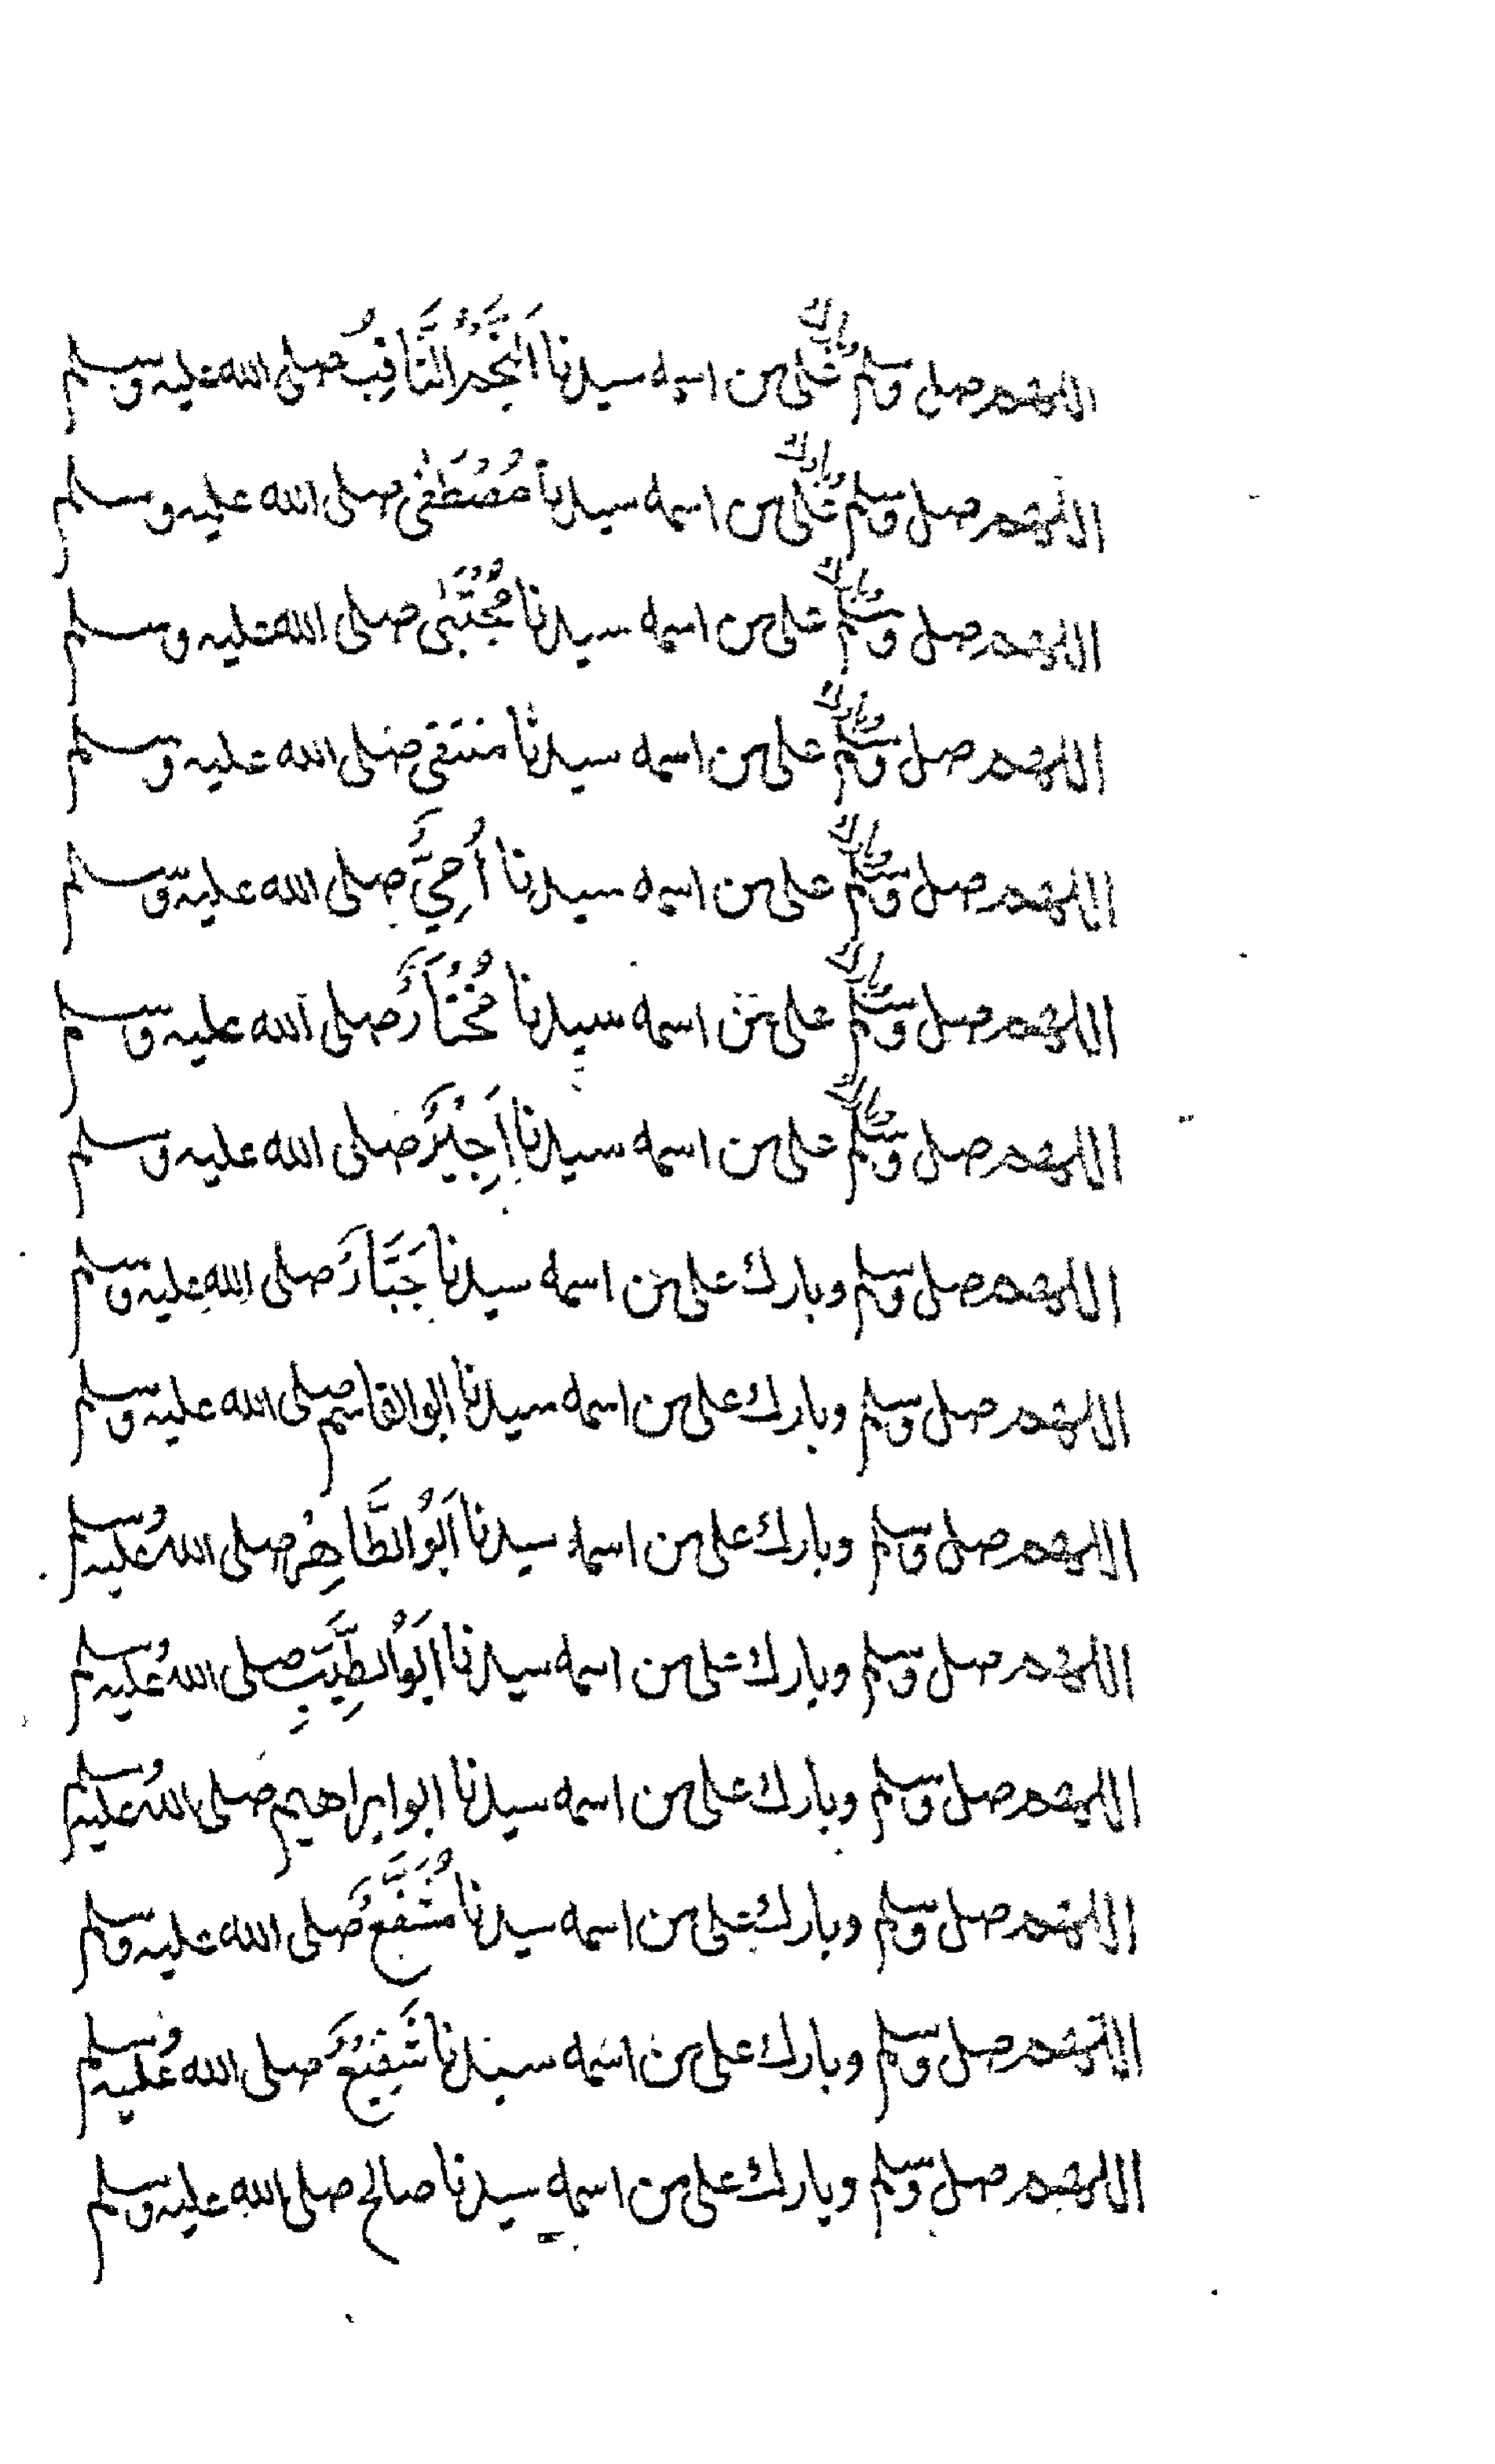 اللهم صل وسلم وبارك على من اسمه سيدنا اَلنَّجْمُ الثَّاقِبُ صلى الله عليه وسلم
اللهم صل وسلم وبارك على من اسمه سيدنا مُصْطَفٰى صلى الله عليه وسلم
اللهم صل وسلم وبارك على من اسمه سيدنا مُجْتَبٰى صلى الله عليه وسلم
اللهم صل وسلم وبارك على من اسمه سيدنا منتقى صلى الله عليه وسلم
اللهم صل وسلم وبارك على من اسمه سيدنا صلى الله عليه وسلم
اللهم صل وسلم وبارك على من اسمه سيدنا مُخْتَارٌ صلى الله عليه وسلم
اللهم صل وسلم وبارك على من اسمه سيدنا اَجِيْرٌ صلى الله عليه وسلم
اللهم صل وسلم وبارك على من اسمه سيدنا جَبَّارٌ صلى الله عليه وسلم
اللهم صل وسلم وبارك على من اسمه سيدنا ابوالقاسم صلى الله عليه وسلم
اللهم صل وسلم وبارك على من اسمه سيدنا اَبُوْالطَّاهِرْ صلى الله عليه وسلم
اللهم صل وسلم وبارك على من اسمه سيدنا اَبُوْالطَّيِّبِ صلى الله عليه وسلم
اللهم صل وسلم وبارك على من اسمه سيدنا ابوابراهيم صلى الله عليه وسلم
اللهم صل وسلم وبارك على من اسمه سيدنا مُشَفَّعٌ صلى الله عليه وسلم
اللهم صل وسلم وبارك على من اسمه سيدنا شَفِيْعٌ صلى الله عليه وسلم
اللهم صل وسلم وبارك على من اسمه سيدنا صالح صلى الله عليه وسلم